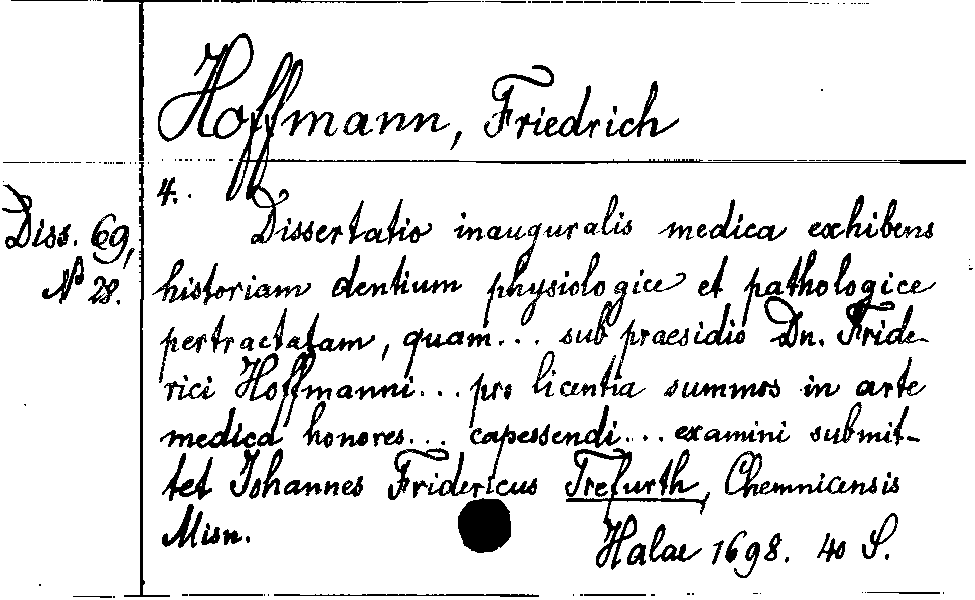 Hoffmann, Friedrich
4.
Diss. 69,
N 28.
Dissertatio inauguralis medica exhibens
historiam dentium physiologice et pathologice
pertractatam, quam... sub praesidio Dn. Fride-
rici Hoffmanni... pro licentia summos in arte
medica honores... capessendi... examini submit-
tet Johannes Fridericus Trefurth, Chemnicensis
Misn.
Halae 1698. 40 S.